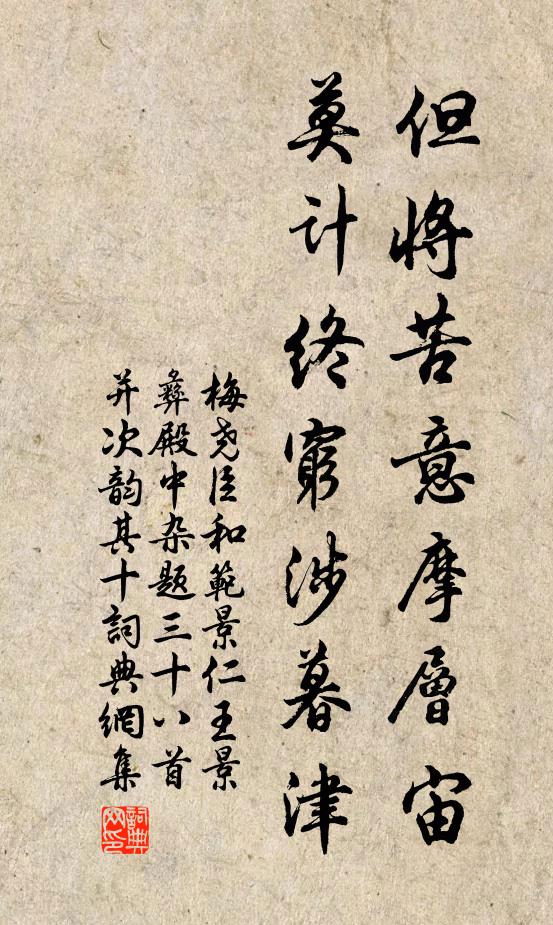 但将苦意摩層宙
莫计终窮涉暮津
梅尧臣和範景仁王景
彝殿中杂题三十八首
并次韵其十詞典網集
詞典
网印